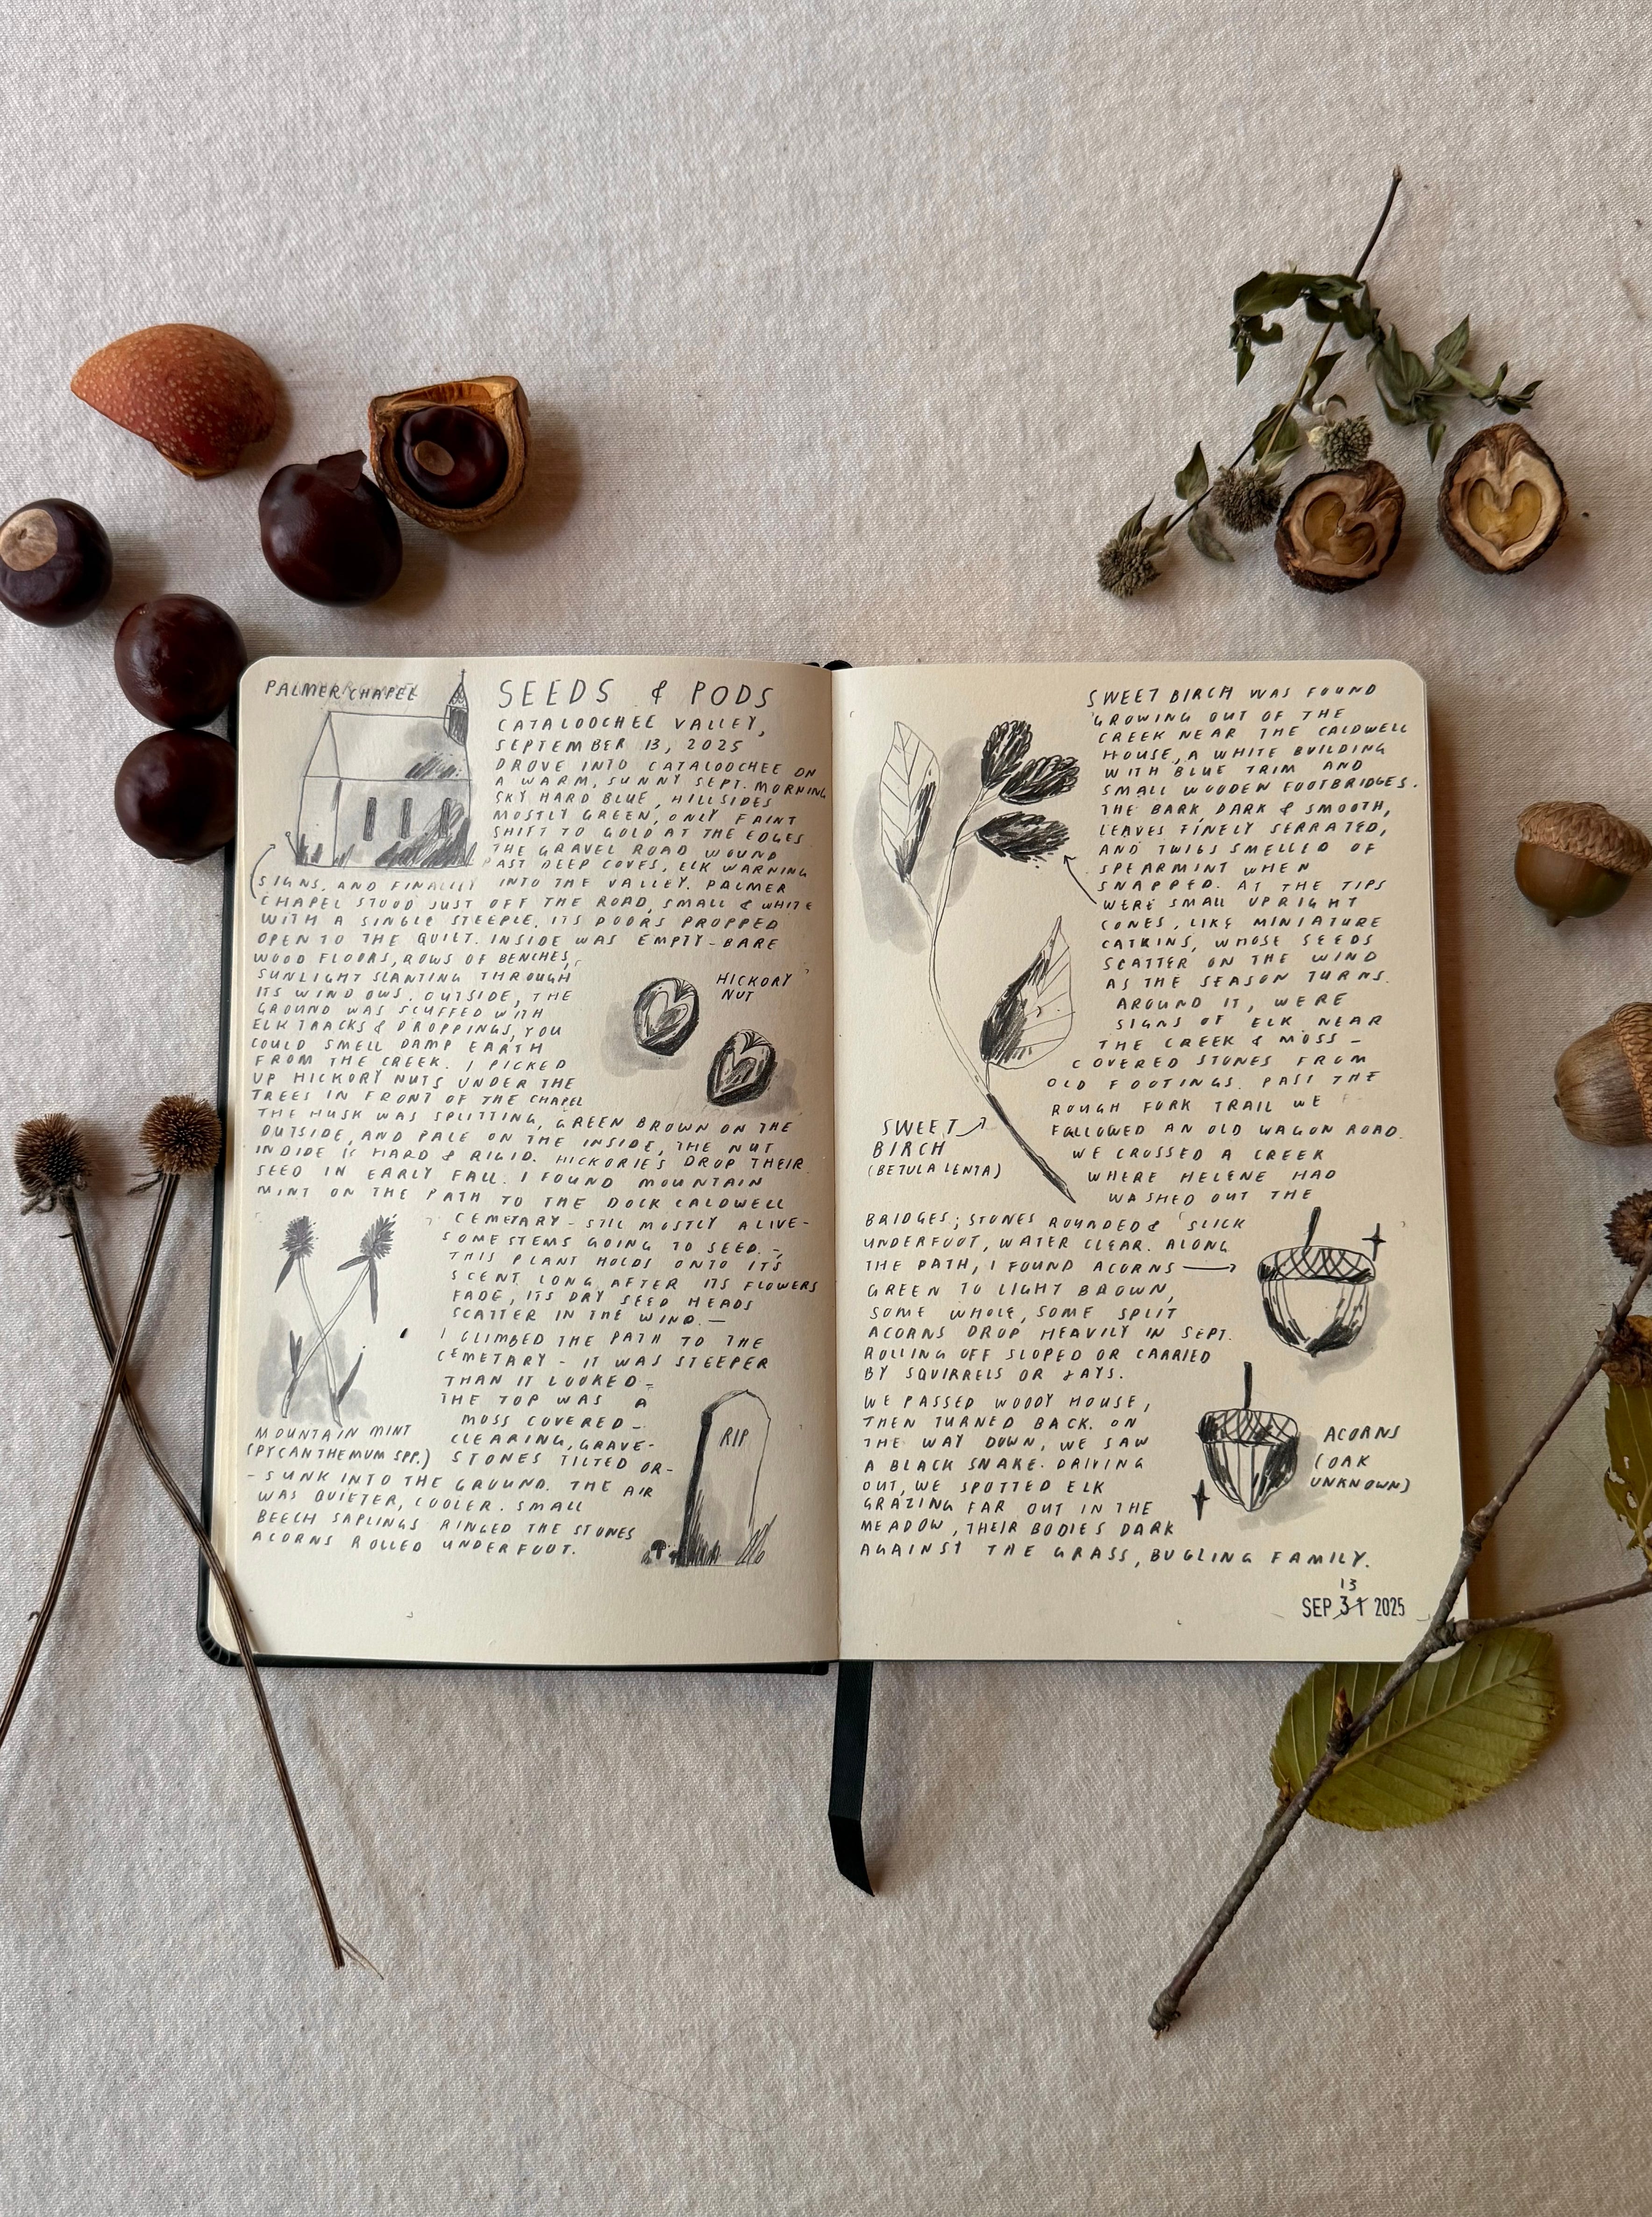 PALMER CHAPEL
SEEDS & PODS
CATALOOCHEE VALLEY,
SEPTEMBER 13, 2025
DROVE INTO CATALOOCHEE ON
A WARM, SUNNY SEPT. MORNING
SKY HARD BLUE, HILLSIDES
MOSTLY GREEN, ONLY FAINT
SHIFT TO GOLD AT THE EDGES
THE GRAVEL ROAD WOUND
PAST DEEP COVES, ELK WARNING
SIGNS, AND FINALLY INTO THE VALLEY. PALMER
CHAPEL STOOD JUST OFF THE ROAD, SMALL & WHITE
WITH A SINGLE STEEPLE. ITS DOORS PROPPED
OPEN TO THE QUILT. INSIDE WAS EMPTY-BARE
WOOD FLOORS, ROWS OF BENCHES,
SUNLIGHT SLANTING THROUGH
ITS WINDOWS. OUTSIDE, THE
GROUND WAS SCUFFED WITH
ELK TRACKS & DROPPINGS, YOU
COULD SMELL DAMP EARTH
FROM THE CREEK. I PICKED
UP HICKORY NUTS UNDER THE
TREES IN FRONT OF THE CHAPEL
THE HUSK WAS SPLITTING, GREEN BROWN ON THE
OUTSIDE, AND PALE ON THE INSIDE, THE NUT
INDIDE IS HARD & RIGID. HICKORIES DROP THEIR
SEED IN EARLY FALL. I FOUND MOUNTAIN
MINT ON THE PATH TO THE DOCK CALDWELL
CEMETARY - STIL MOSTLY ALIVE-
SOME STEMS GOING TO SEED.-
THIS PLANT HOLDS ONTO IT'S
SCENT LONG AFTER ITS FLOWERS
FADE, ITS DRY SEED HEADS
SCATTER IN THE WIND.—
I CLIMBED THE PATH TO THE
CEMETARY - IT WAS STEEPER
THAN IT LOOKED-
THE TOP WAS A
MOSS COVERED-
CLEARING, GRAVE-
STONES TILTED OR-
- SUNK INTO THE GROUND. THE AIR
WAS QUIETER, COOLER. SMALL
BEECH SAPLINGS RINGED THE STONES
ACORNS ROLLED UNDERFOOT.
HICKORY
NUT
MOUNTAIN MINT
(PYCANTHEMUM SPP.)
RIP
SWEET BIRCH WAS FOUND
GROWING OUT OF THE
CREEK NEAR THE CALDWELL
HOUSE, A WHITE BUILDING
WITH BLUE TRIM AND
SMALL WOODEN FOOTBRIDGES.
THE BARK, DARK & SMOOTH,
LEAVES FINELY SERRATED,
AND TWIGS SMELLED OF
SPEARMINT WHEN
SNAPPED. AT THE TIPS
WERE SMALL UPRIGHT
CONES, LIKE MINIATURE
CATKINS, WHOSE SEEDS
SCATTER ON THE WIND
AS THE SEASON TURNS.
AROUND IT, WERE
SIGNS OF ELK NEAR
THE CREEK & MOSS-
COVERED STONES FROM
OLD FOOTINGS. PAST THE
ROUGH FORK TRAIL WE
FOLLOWED AN OLD WAGON ROAD.
WE CROSSED A CREEK
WHERE HELENE HAD
WASHED OUT THE
BRIDGES; STONES ROUNDED & SLICK
UNDERFOOT, WATER CLEAR. ALONG
THE PATH, I FOUND ACORNS
GREEN TO LIGHT BROWN,
SOME WHOLE, SOME SPLIT
ACORNS DROP HEAVILY IN SEPT.
ROLLING OFF SLOPED OR CARRIED
BY SQUIRRELS OR JAYS.
WE PASSED WOODY HOUSE,
THEN TURNED BACK. ON
THE WAY DOWN, WE SAW
A BLACK SNAKE. DRIVING
OUT, WE SPOTTED ELK
GRAZING FAR OUT IN THE
MEADOW, THEIR BODIES DARK
AGAINST THE GRASS, BUGLING FAMILY.
SWEET
BIRCH
(BETULA LENTA)
ACORNS
(OAK
UNKNOWN)
13
SEP 31 2025